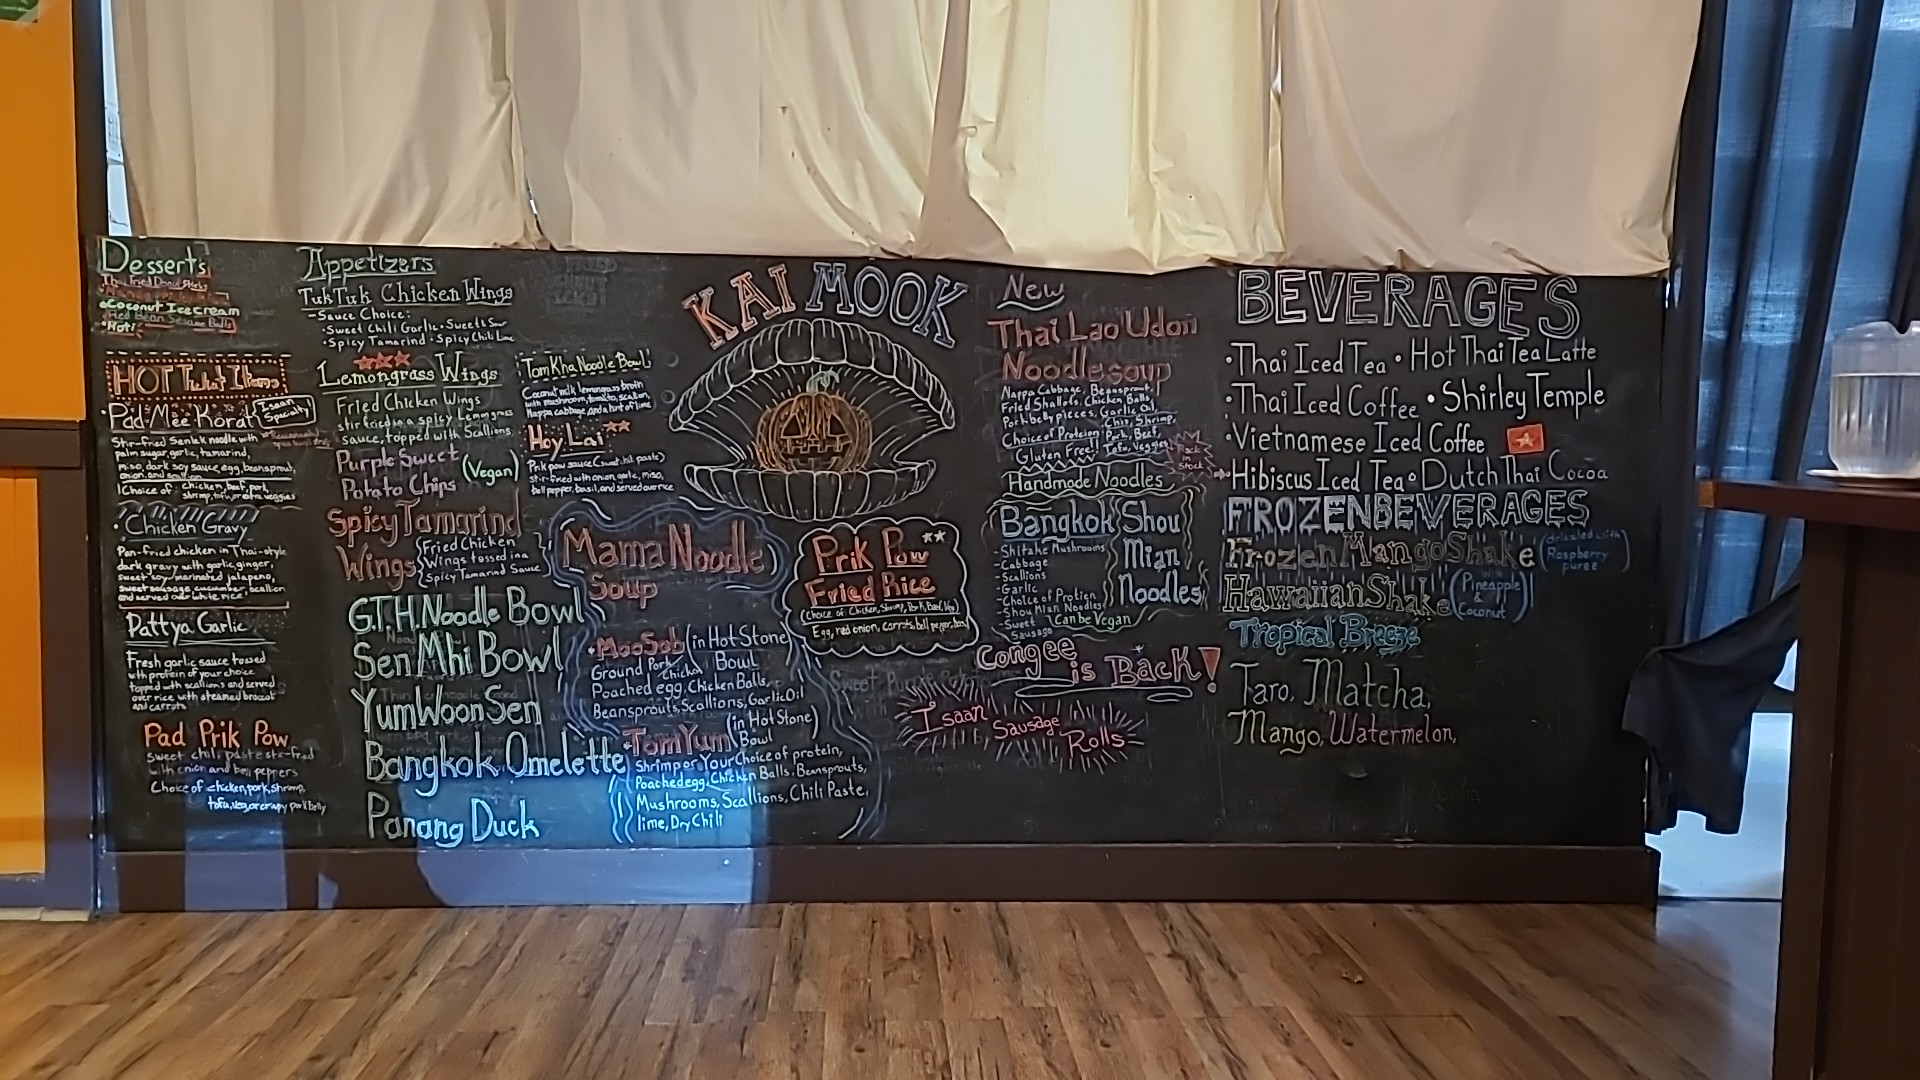 Desserts
Thai Fried Donut Sticks
Coconut Ice cream
Red Bean Sesame Balls
Hot!
HOT Ticket Items
• Pad Mee Korat
Isaan Specialty
Stir-fried Senlek noodle with
palm sugar, garlic, tamarind,
miso, dark soy sauce, egg, beansprout,
onion, and scallion
Choice of: chicken, beef, pork,
shrimp, tofu, or extra veggies
• Chicken Gravy
Pan-fried chicken in Thai-style
dark gravy with garlic, ginger,
sweet soy marinated jalapeno,
sweet sausage, cucumber, scallion
and served over white rice
Pattya Garlic
Fresh garlic sauce tossed
with protein of your choice
topped with scallions and served
over rice with steamed broccoli
and carrots
Pad Prik Pow
sweet chili paste stir-fried
with onion and bell peppers
Choice of chicken, pork, shrimp,
tofu, veg, or crispy pork belly
Appetizers
TukTuk Chicken Wings
- Sauce Choice:
• Sweet Chili Garlic • Sweet & Sour
• Spicy Tamarind • Spicy Chili Lime
Lemongrass Wings
Fried Chicken Wings
stir fried in a spicy Lemongrass
sauce, topped with Scallions
Purple Sweet
Potato Chips
(Vegan)
Spicy Tamarind
Wings
Fried Chicken
Wings tossed in a
Spicy Tamarind Sauce
G.T.H. Noodle Bowl
Sen Mhi Bowl
Yum Woon Sen
Bangkok Omelette
Panang Duck
Tom Kha Noodle Bowl
Coconut milk lemongrass broth
with mushroom, tomato, scallion,
Nappa cabbage, and a hint of lime
Hoy Lai
Prik pow sauce (sweet chili paste)
Stir-fried with onion, garlic, miso,
bell pepper, basil, and served over rice
Mama Noodle
Soup
• Moo Sob (in Hot Stone
Bowl
Ground Pork/Chicken
Poached egg, Chicken Balls,
Beansprouts, Scallions, Garlic Oil
• Tom Yum (in Hot Stone)
Bowl
Shrimp or Your Choice of protein,
Poached egg, Chicken Balls, Beansprouts,
Mushrooms, Scallions, Chili Paste,
lime, Dry Chili
KAI MOOK
Prik Pow
Fried Rice
Choice of: Chicken, Shrimp, Pork, Beef, Veg
Egg, red onion, carrots, bell pepper, basil
New
Thai Lao Udon
Noodle soup
Nappa Cabbage, Beansprout,
Fried Shallots, Chicken Balls,
Pork belly pieces, Garlic Oil,
Choice of Protein: Chix, Shrimp,
Pork, Beef,
Tofu, Veggies
Gluten Free!!
Handmade Noodles
Back
in
Stock
Bangkok Shou
Mian
Noodles
- Shitake Mushrooms
- Cabbage
- Scallions
- Garlic
- Choice of Protien
- Shou Mian Noodles
- Sweet
Sausage
Can be Vegan
Congee
is Back!
Isaan Sausage Rolls
BEVERAGES
• Thai Iced Tea • Hot Thai Tea Latte
• Thai Iced Coffee • Shirley Temple
• Vietnamese Iced Coffee
Hibiscus Iced Tea • Dutch Thai Cocoa
FROZEN BEVERAGES
Frozen Mango Shake (drizzled with
Raspberry
puree)
Hawaiian Shake (with
Pineapple
&
Coconut)
Tropical Breeze
Taro, Matcha,
Mango, Watermelon,